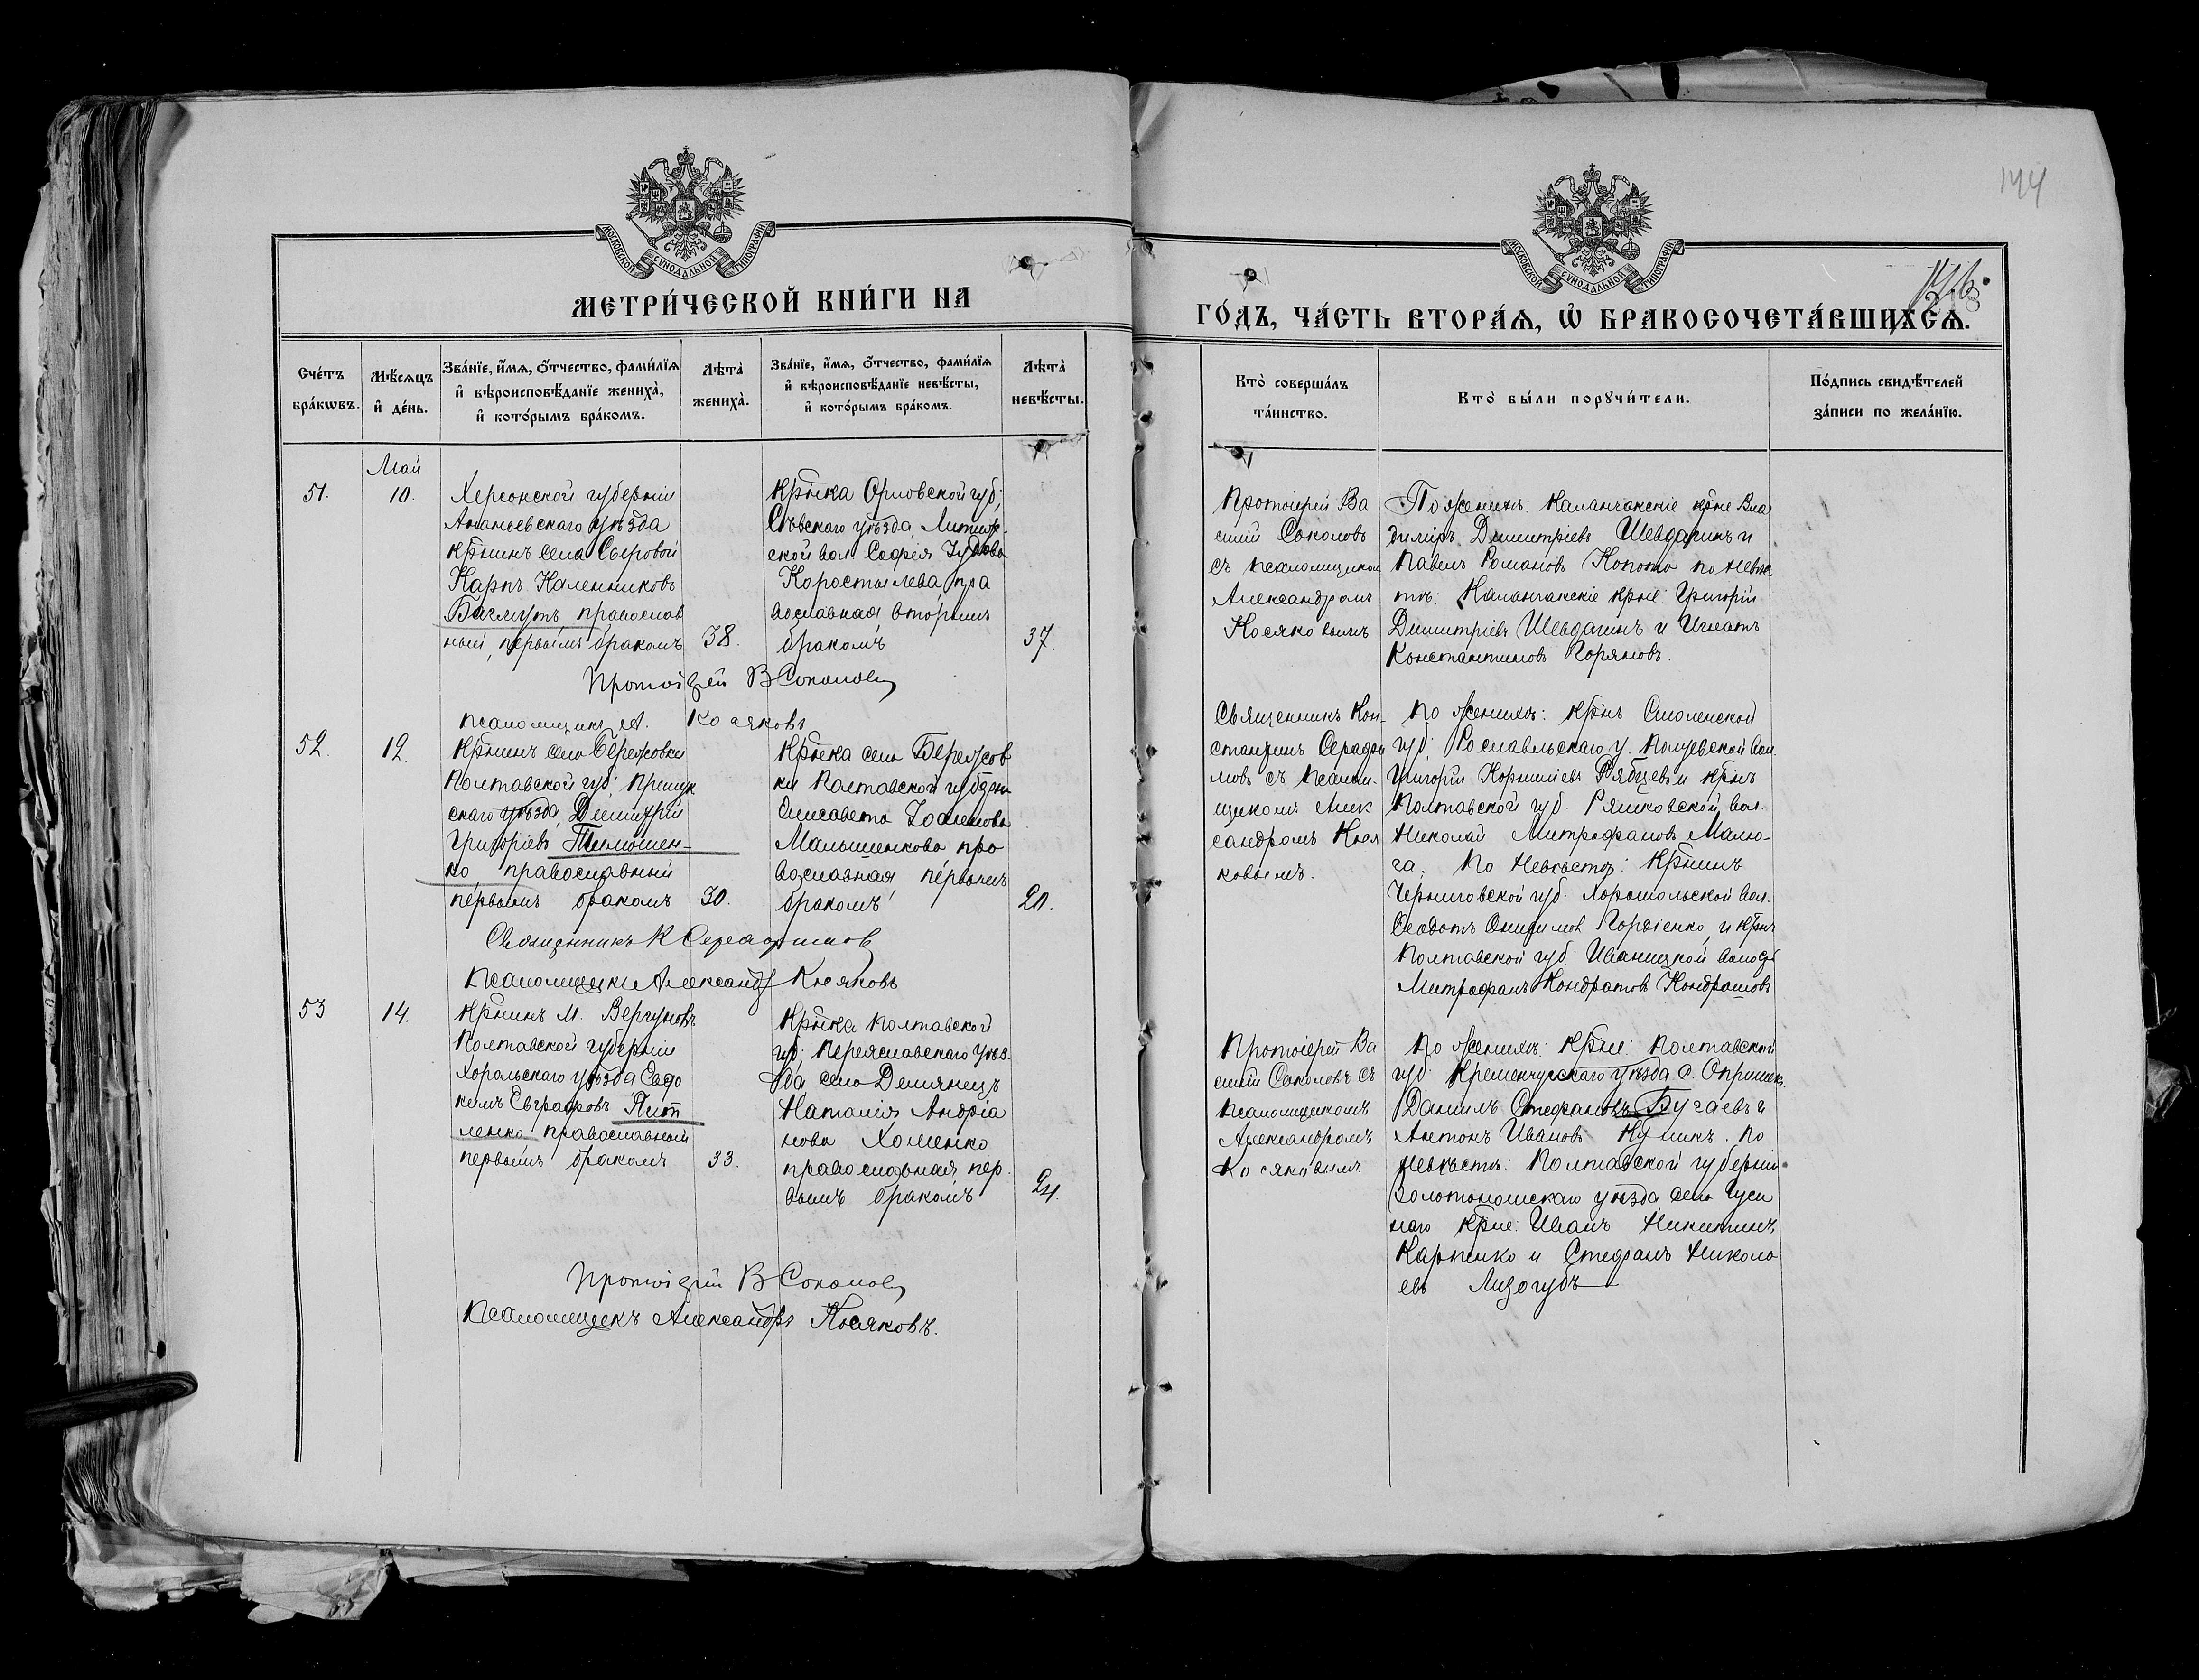 144
МОСКОВСКОЙ СѴНОДАЛЬНОЙ ТИПОГРАФІИ
МОСКОВСКОЙ СѴНОДАЛЬНОЙ ТИПОГРАФІИ
МЕТРИ́ЧЕСКОЙ КНИ́ГИ НА
ГО́ДЪ, ЧА́СТЬ ВТОРА́Ѧ, Ѡ҆ БРАКОСОЧЕТА́ВШИХСѦ.
Сче́тъ бра́кѡвъ.
Мѣ́сѧцъ и҆ де́нь.
Зва́нїе, и҆́мѧ, ѻ҆́тчество, фами́лїѧ и҆ вѣроисповѣ́данїе жениха̀, и҆ кото́рымъ бра́комъ.
Лѣ́та̀ жениха̀.
Зва́нїе, и҆́мѧ, ѻ҆́тчество, фами́лїѧ и҆ вѣроисповѣ́данїе невѣ́сты, и҆ кото́рымъ бра́комъ.
Лѣ́та̀ невѣ́сты.
Кто̀ соверша́лъ та́инство.
Кто̀ бы́ли порꙋчи́тели.
По́дпись свидѣ́телей за́писи по жела́нїю.
Май
51.
10.
Херсонской губерніи
Ананьевскаго уѣзда
крнинъ села Сыровой
Карпъ Каленниковъ
Баглутъ православ
ный, первымъ бракомъ
38.
Крнка Орловской губ.
Сѣвскаго уѣзда,
ской вол. Софія
Коростылева, пра
вославная, вторымъ
бракомъ
37.
Протоіерей Ва
силій Соколовъ
съ псаломщикомъ
Александромъ
Косяковымъ
По женихѣ: Каланчакскіе крне Вла
димиръ Димитріевъ Шевдагинъ и
Павелъ Романовъ Копото по невѣс
тѣ: Каланчакскіе крне: Григорій
Димитріевъ Шевдагинъ и Игнатъ
Константиновъ Горяновъ.
Протоіерей В Соколовъ
Псаломщикъ А. Косяковъ
52.
12.
Крнинъ села Бережовки
Полтавской губ. Прилук
скаго уѣзда, Димитрій
Григоріевъ Тимошен-
ко, православный
первымъ бракомъ
30.
Крнка села Бережов
ки Полтавской губерн
Елисавета Іоакимова
Малышенкова пра
вославная, первымъ
бракомъ
20.
Священникъ Кон-
стантинъ Серафи
мовъ съ псалом-
щикомъ Алек
сандромъ Кося
ковымъ.
По женихѣ: крнъ Смоленской
губ. Рославльскаго у. вол.
Григорій Корниліевъ Рябцевъ и крнъ
Полтавской губ. Ряшковской вол.
Николай Митрофановъ Малю-
га; По невѣстѣ: Крнинъ
Черниговской губ. вол.
Ѳеодотъ Онисимов Гордіенко, и крнъ
Полтавской губ. Иваницкой волос
Митрофанъ Кондратов Кондрашовъ
Священникъ К Серафимов
Псаломщикъ Александръ Косяковъ
53
14.
Крнинъ м. Вергуновъ
Полтавской губерніи
Хорольскаго уѣзда Евдо
кимъ Евграфовъ
ленко православный
первымъ бракомъ
33.
Крнка Полтавской
губ. Переяславскаго уѣз
да села Демянецъ
Наталія Андріа
нова Хоменко
православная пер
вымъ бракомъ
24.
Протоіерей Ва
силій Соколовъ съ
псаломщикомъ
Александромъ
Косяковымъ
По женихѣ: крне: Полтавской
губ. Кременчугскаго уѣзда с.
Даніилъ Стефановъ Бугаевъ и
Антонъ Ивановъ Куликъ. По
невѣстѣ: Полтавской губерніи
Золотоношскаго уѣзда села Гуси
наго крне: Иванъ Никитинъ
Карпенко и Стефанъ Никола
евъ Лизогубъ
Протоіерей В Соколовъ
Псаломщикъ Александръ Косяковъ.